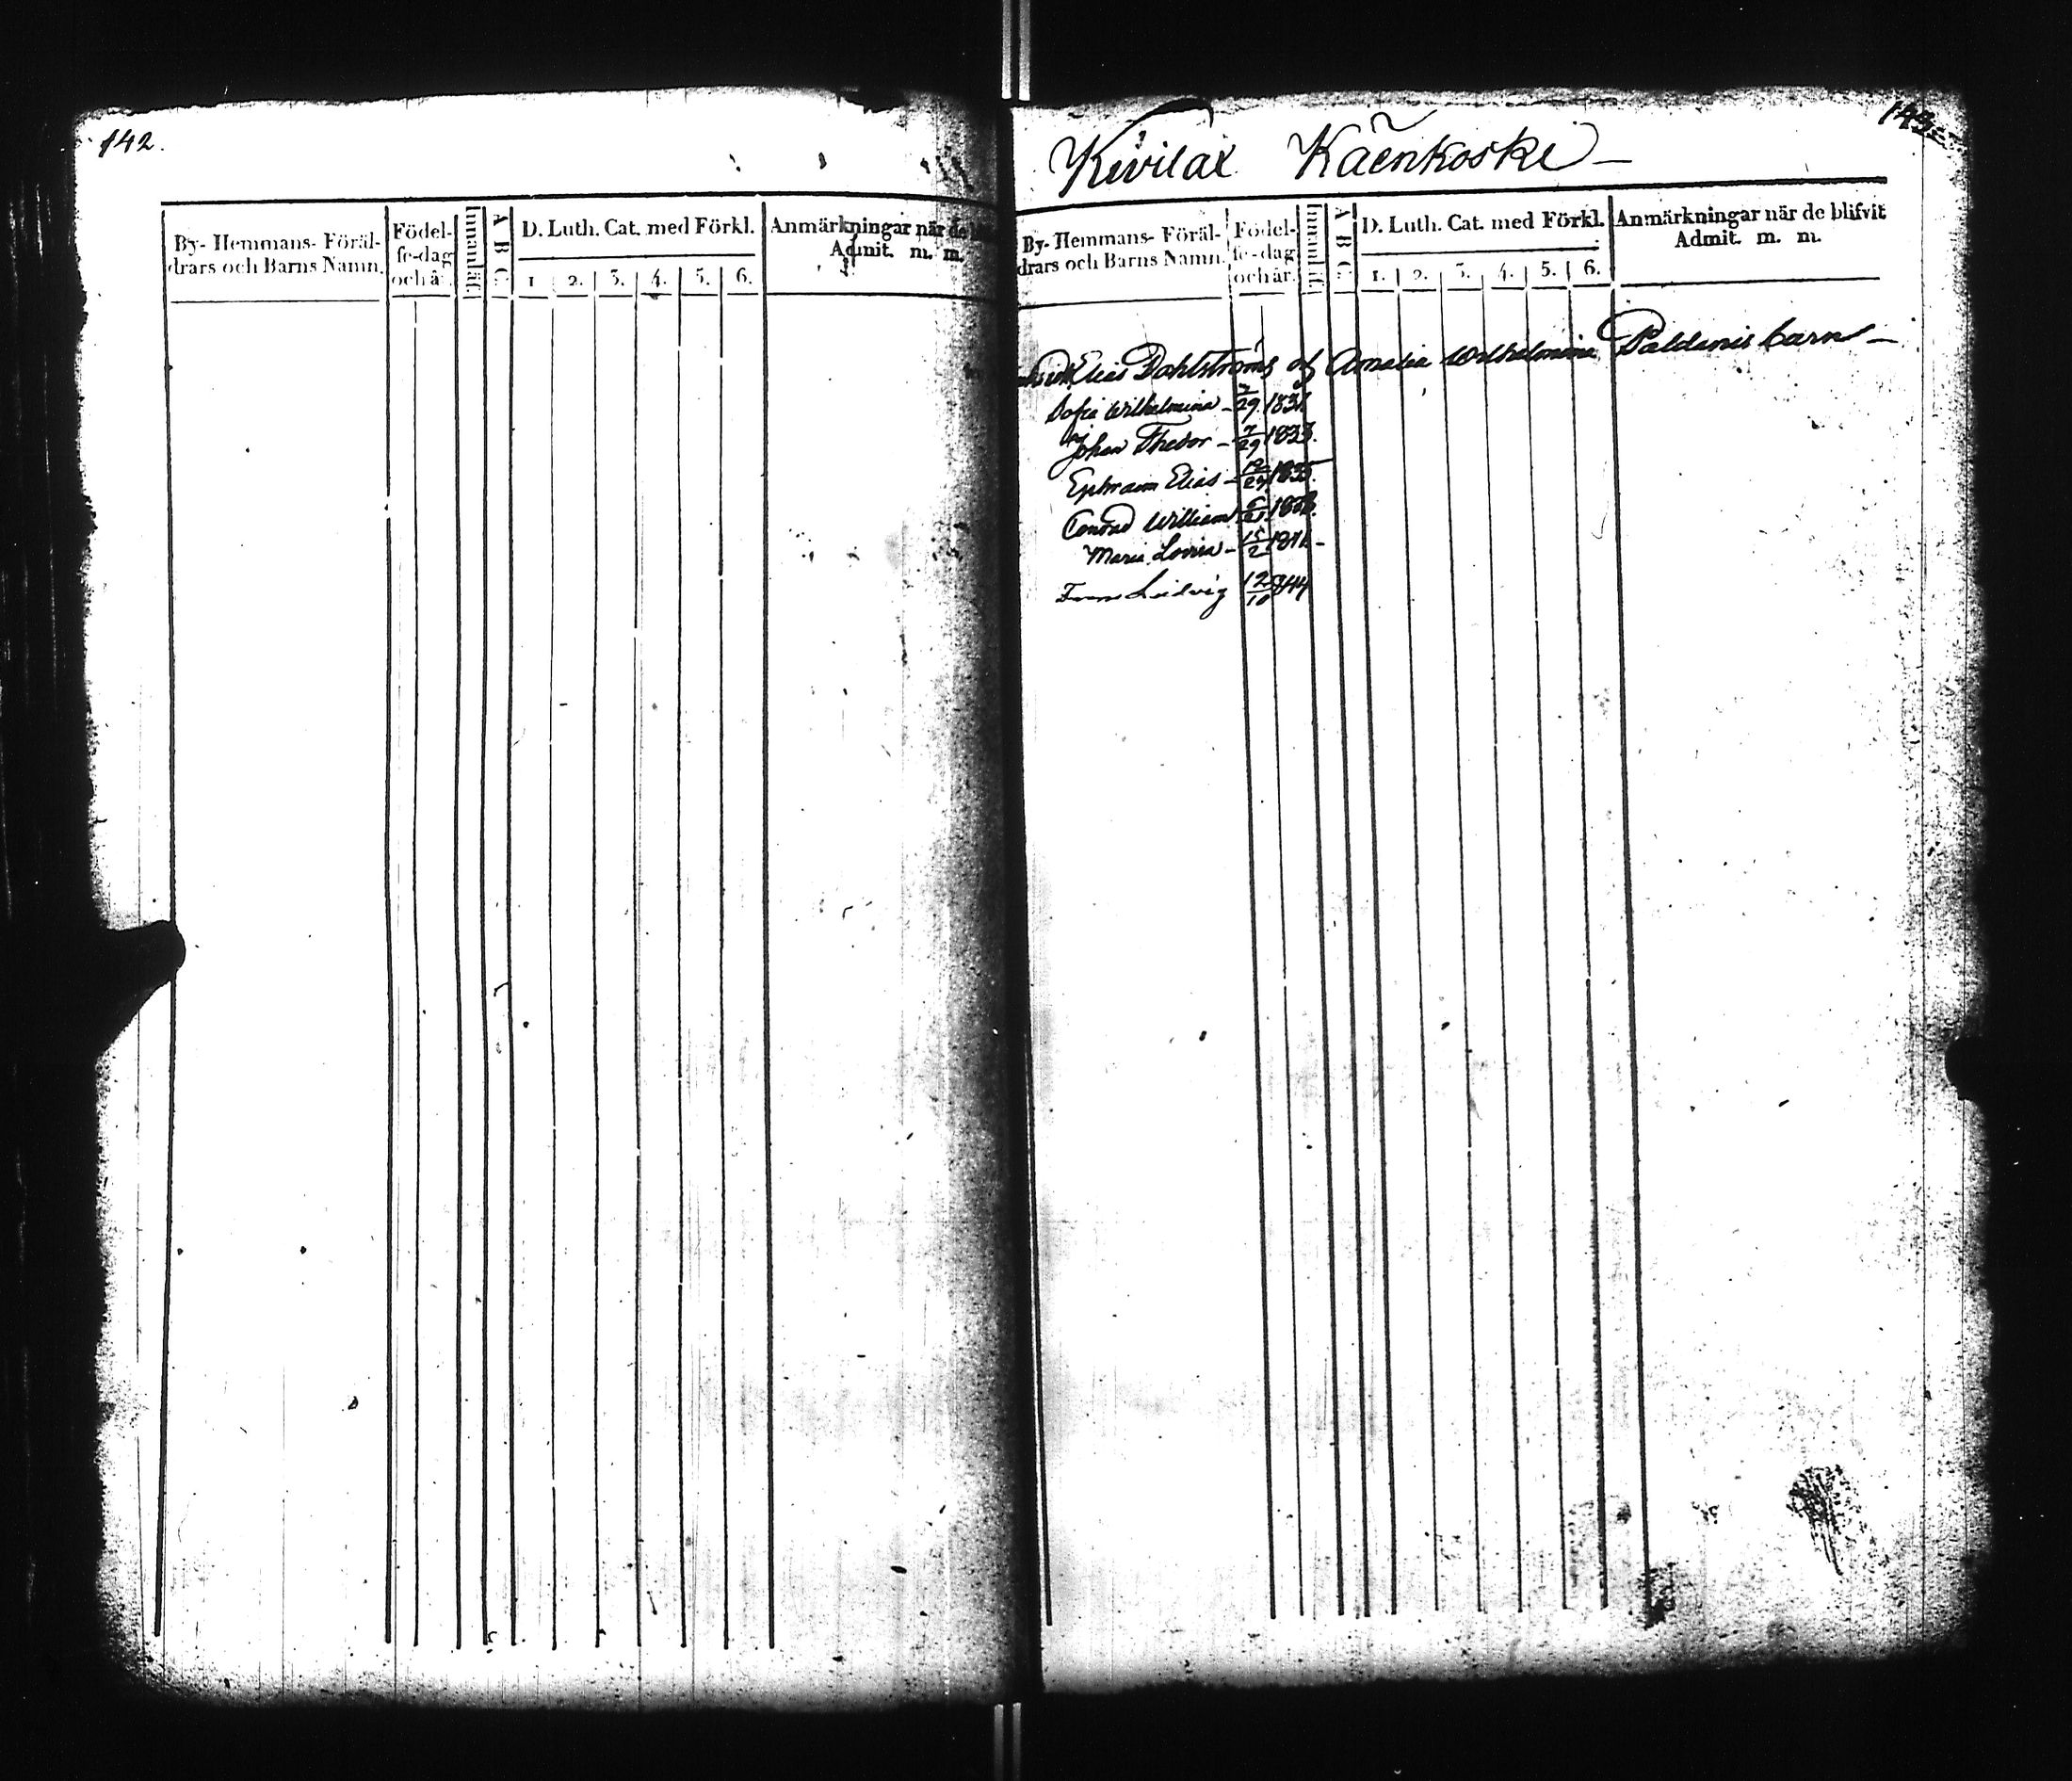 142.
By- Hemmans- Föräl-
drars och Barns Namn.
Födel-
se-dag
och år.
Innanläs.
A B C.
D. Luth. Cat. med Förkl.
1 2. 3. 4. 5. 6.
Anmärkningar när de
Admit. m. m.
143.
Kivilax Käenkoske
By- Hemmans- Föräl-
drars och Barns Namn.
Födel-
se-dag
och år.
Innanläs.
A B C.
D. Luth. Cat. med Förkl.
1. 2. 3. 4. 5. 6.
Anmärkningar när de blifvit
Admit. m. m.
Elias Dahlströms och Amalia Wilhelmina Paldanis barn
Sofia Wilhelmina 7/29 1831.
Johan Thedor 7/29 1833.
Ephraim Elias 1835.
Conrad William
Maria Lovisa 15/2 1841
Frans Ludvig 12/10 1844